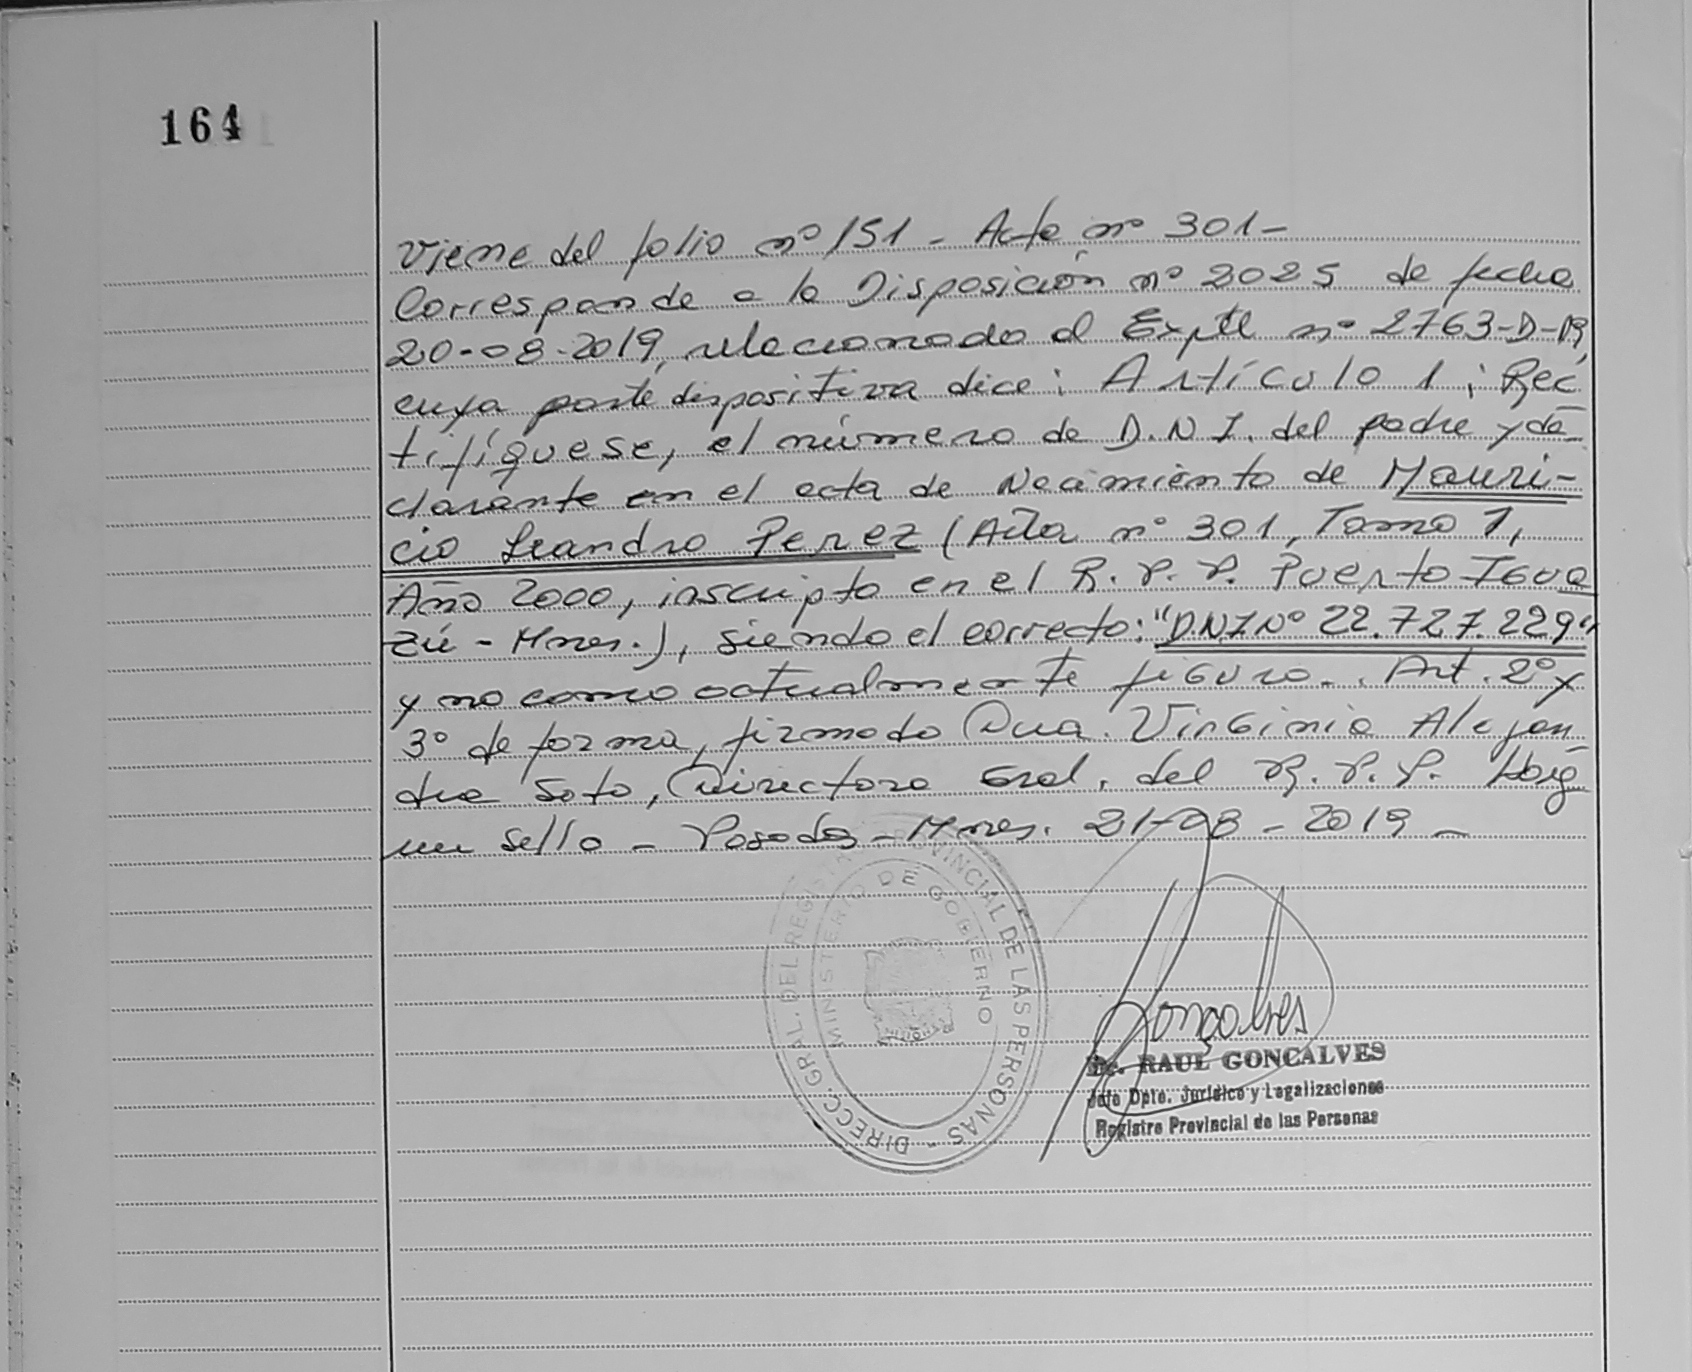 164
Viene del folio nº 151 - Acta nº 301 -
Corresponde a la Disposición nº 2025 de fecha
20-08-2019, relacionado al Expte nº 2763-D-19,
cuya parte dispositiva dice: Artículo 1: Rec-
tifíquese, el número de D.N.I. del padre y de-
clarante en el acta de Nacimiento de Mauri-
cio Leandro Perez (Acta nº 301, Tomo 1,
Año 2000, inscripto en el R.P.P. Puerto Igua
zú - Mnes.), siendo el correcto: "D.N.I Nº 22.727.229"
y no como actualmente figura.. Art. 2º y
3º de forma, firmado Dra. Virginia Alejan-
dra Soto, Directora Gral. del R.P.P. Hay
un sello - Posadas - Mnes. 21-08-2019 -
DIRECC. GRAL. DEL REGISTRO PROVINCIAL DE LAS PERSONAS -
MINISTERIO DE GOBIERNO
Gonçalves
Dr. RAUL GONÇALVES
Jefe Dpto. Jurídico y Legalizaciones
Registro Provincial de las Personas